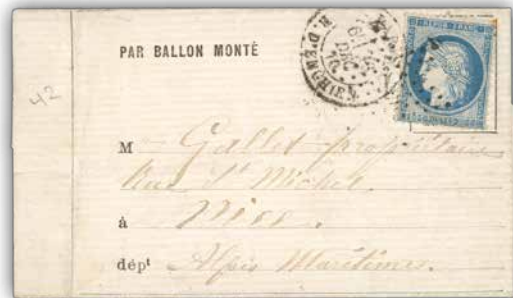 PAR BALLON MONTÉ
R. D'ENGHIEN
DEC
REPUB. FRANC.
42
M Gallet propriétaire
Rue St Michel.
à Nice.
dépt Alpes Maritimes.